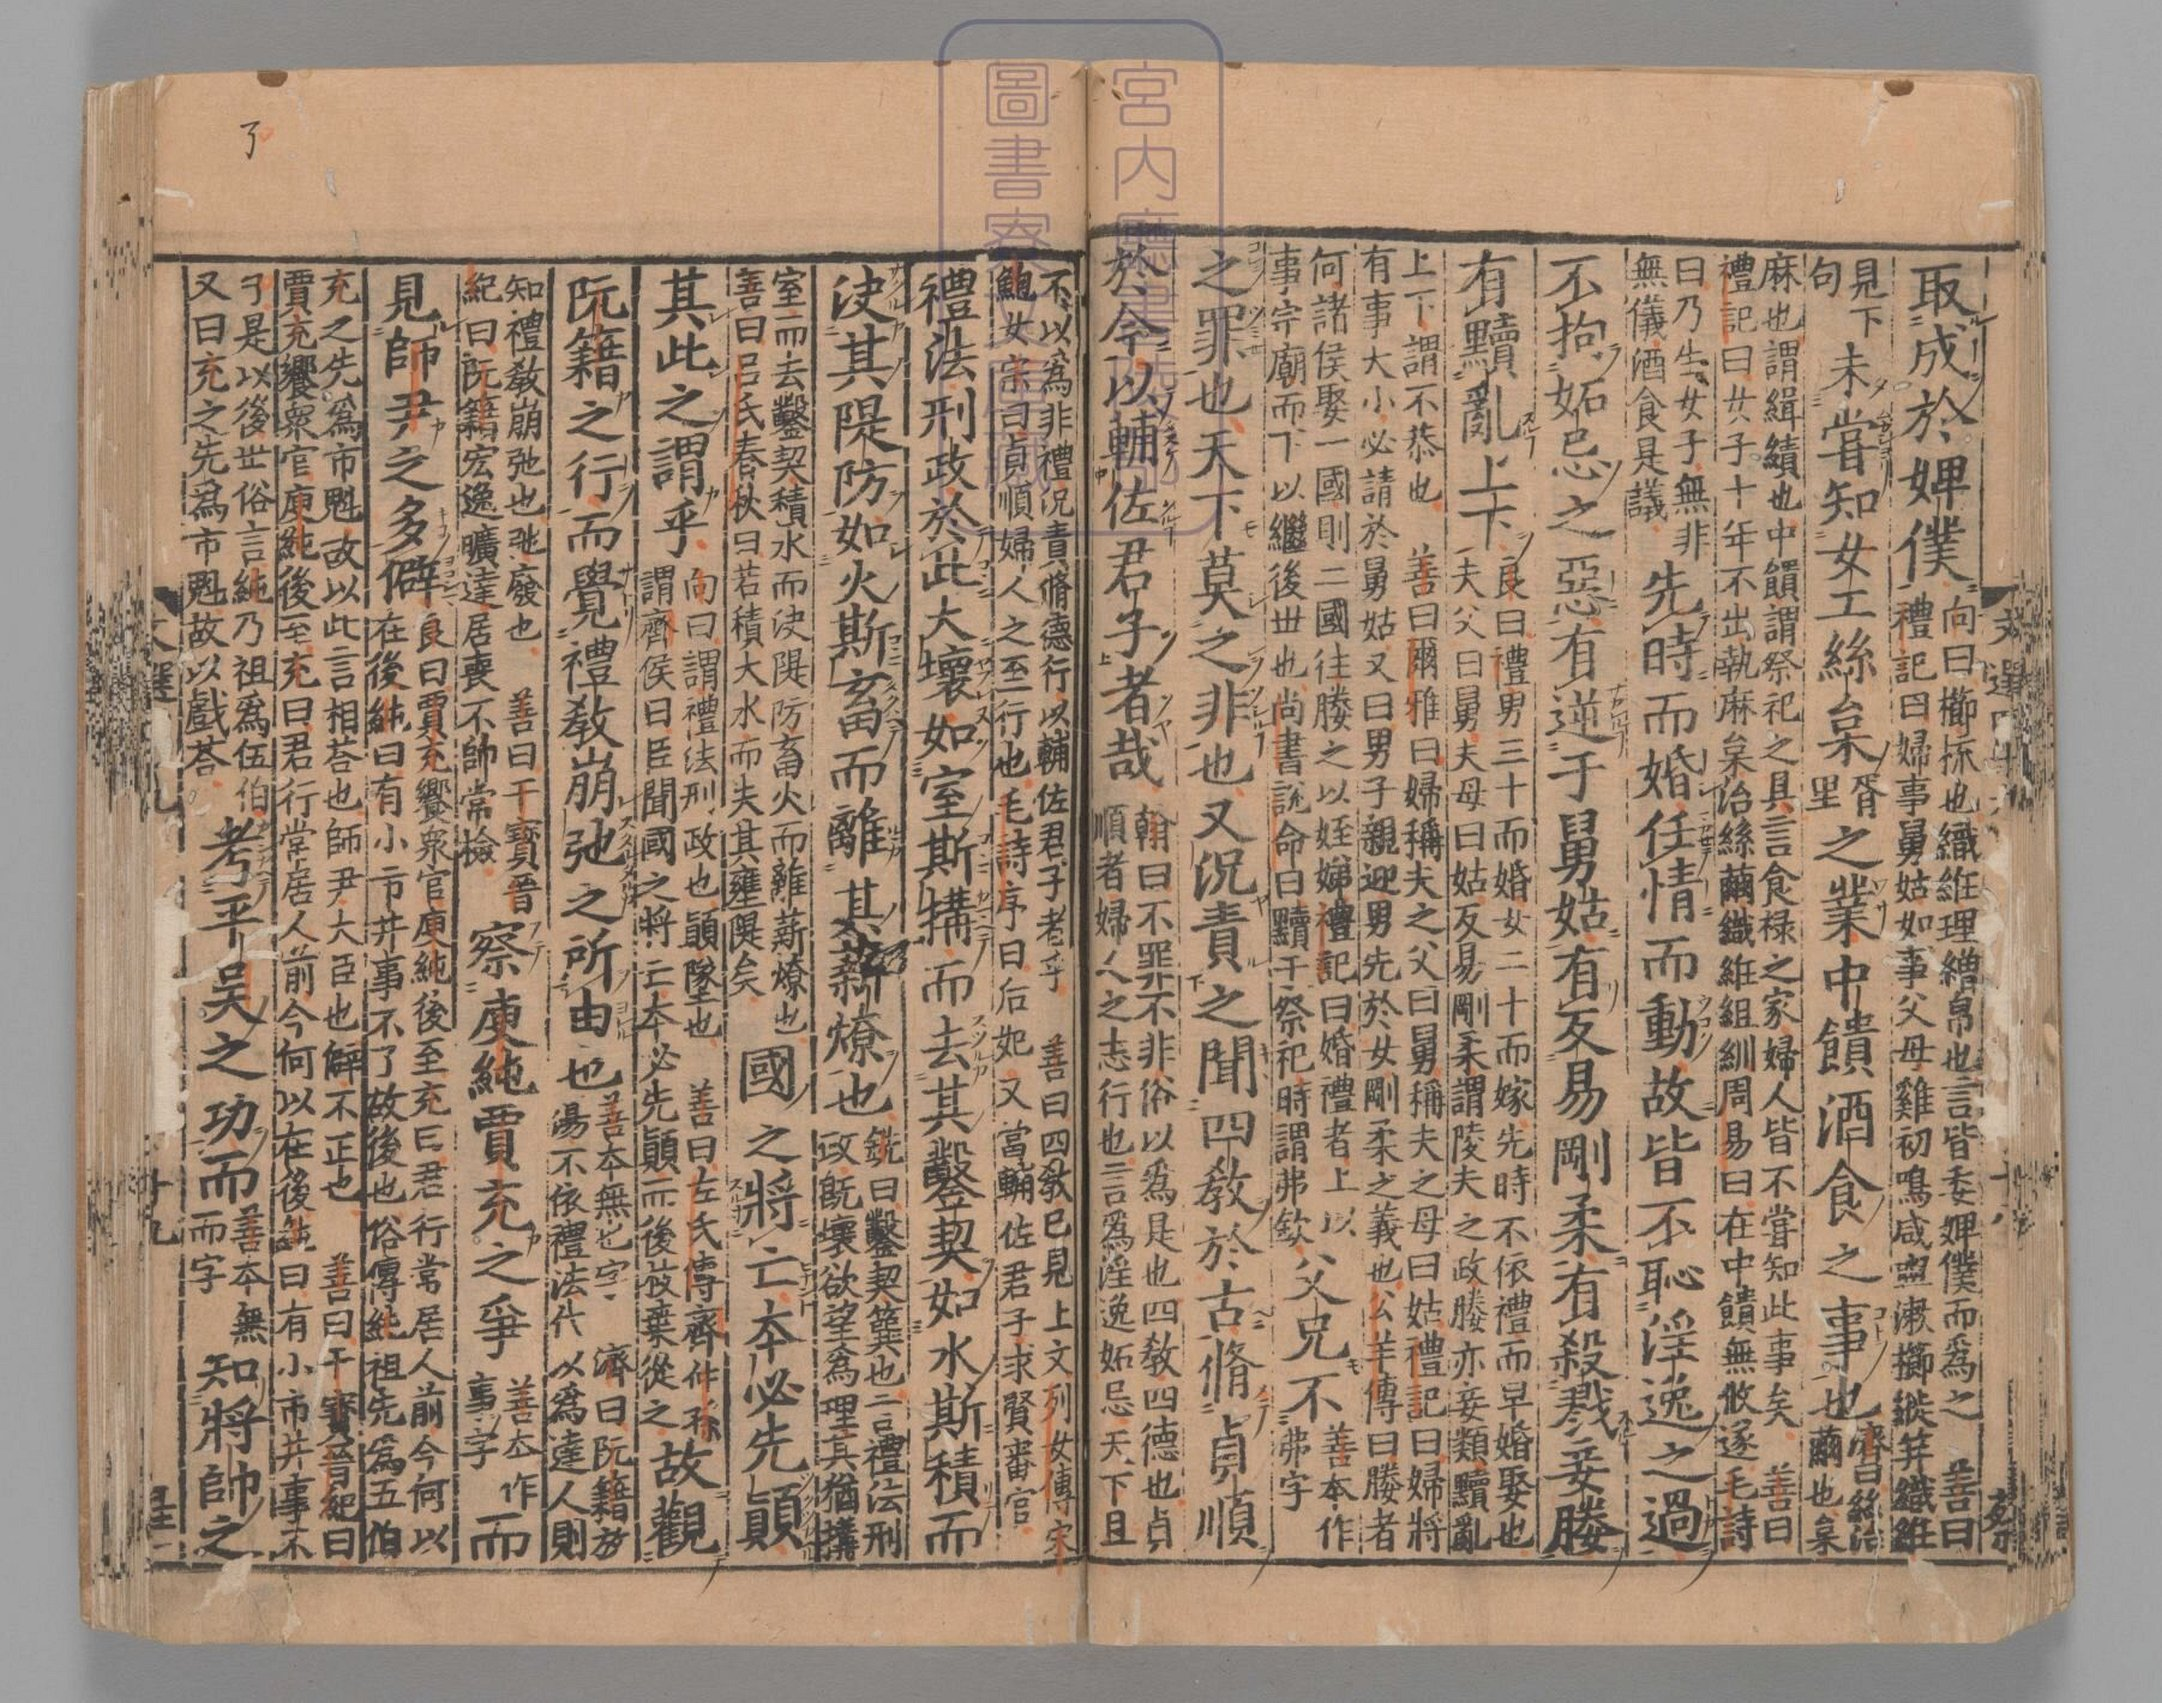 取成於婢僕
向曰櫛㧃也織絍理繒帛也言皆委婢僕而爲之　善曰
禮記曰婦事舅姑如事父母雞初鳴咸盥漱櫛縰笄織絍
見下
句
未嘗知女工絲枲
胥
里
之業中饋酒食之事也
濟曰絲治
繭也枲
麻也謂緝績也中饋謂祭祀之具言食禄之家婦人皆不嘗知此事矣　善曰
禮記曰女子十年不出執麻枲治絲繭織絍組紃周易曰在中饋無攸遂毛詩
曰乃生女子無非
無儀酒食是議
先時而婚任情而動故皆不恥淫逸之過
不拘妬忌之惡有逆于舅姑有反易剛柔有殺戮妾媵
有黷亂上下
良曰禮男三十而婚女二十而嫁先時不依禮而早婚娶也
夫父曰舅夫母曰姑反易剛柔謂陵夫之政媵亦妾類黷亂
上下謂不恭也　善曰爾雅曰婦稱夫之父曰舅稱夫之母曰姑禮記曰婦將
有事大小必請於舅姑又曰男子親迎男先於女剛柔之義也公羊傳曰媵者
何諸侯娶一國則二國往媵之以姪娣禮記曰婚禮者上以
事宗廟而下以繼後世也尚書說命曰黷于祭祀時謂弗欽
父兄不
善本作
弗字
之罪也天下莫之非也又況責之聞四教於古脩貞順
於今以輔佐君子者哉
翰曰不罪不非俗以爲是也四教四德也貞
順者婦人之志行也言爲淫逸妬忌天下且
不以爲非禮況責脩德行以輔佐君子者乎　善曰四教已見上文列女傳宋
鮑女宗曰貞順婦人之至行也毛詩序曰后妃又當輔佐君子求賢審官
禮法刑政於此大壞如室斯構而去其鑿契如水斯積而
決其隄防如火斯畜而離其薪燎也
銑曰鑿契簨也言禮法刑
政旣壞欲望爲理其猶構
室而去鑿契積水而決隄防畜火而離薪燎也
善曰呂氏春秋曰若積大水而失其壅隄矣
國之將亡本必先顛
其此之謂乎
向曰謂禮法刑政也顛墜也　善曰左氏傳齊仲孫
謂齊侯曰臣聞國之將亡本必先顛而後枝葉從之
故觀
阮籍之行而覺禮教崩弛之所由也
善本無也字　濟曰阮籍放
湯不依禮法代以爲達人則
知禮教崩弛也弛廢也　善曰干寶晉
紀曰阮籍宏逸曠達居喪不帥常檢
察庾純賈充之爭
善本作
事字
而
見師尹之多僻
良曰賈充饗衆官庾純後至充曰君行常居人前今何以
在後純曰有小市井事不了故後也俗傳純祖先爲五伯
充之先爲市魁故以此言相荅也師尹大臣也僻不正也　善曰干寶晉紀曰
賈充饗衆官庾純後至充曰君行常居人前今何以在後純曰有小市井事不
了是以後世俗言純乃祖爲伍伯
又曰充之先爲市魁故以戲荅
考平吳之功而
善本無
而字
知將帥之
宮內廳書陵部
圖書寮文庫